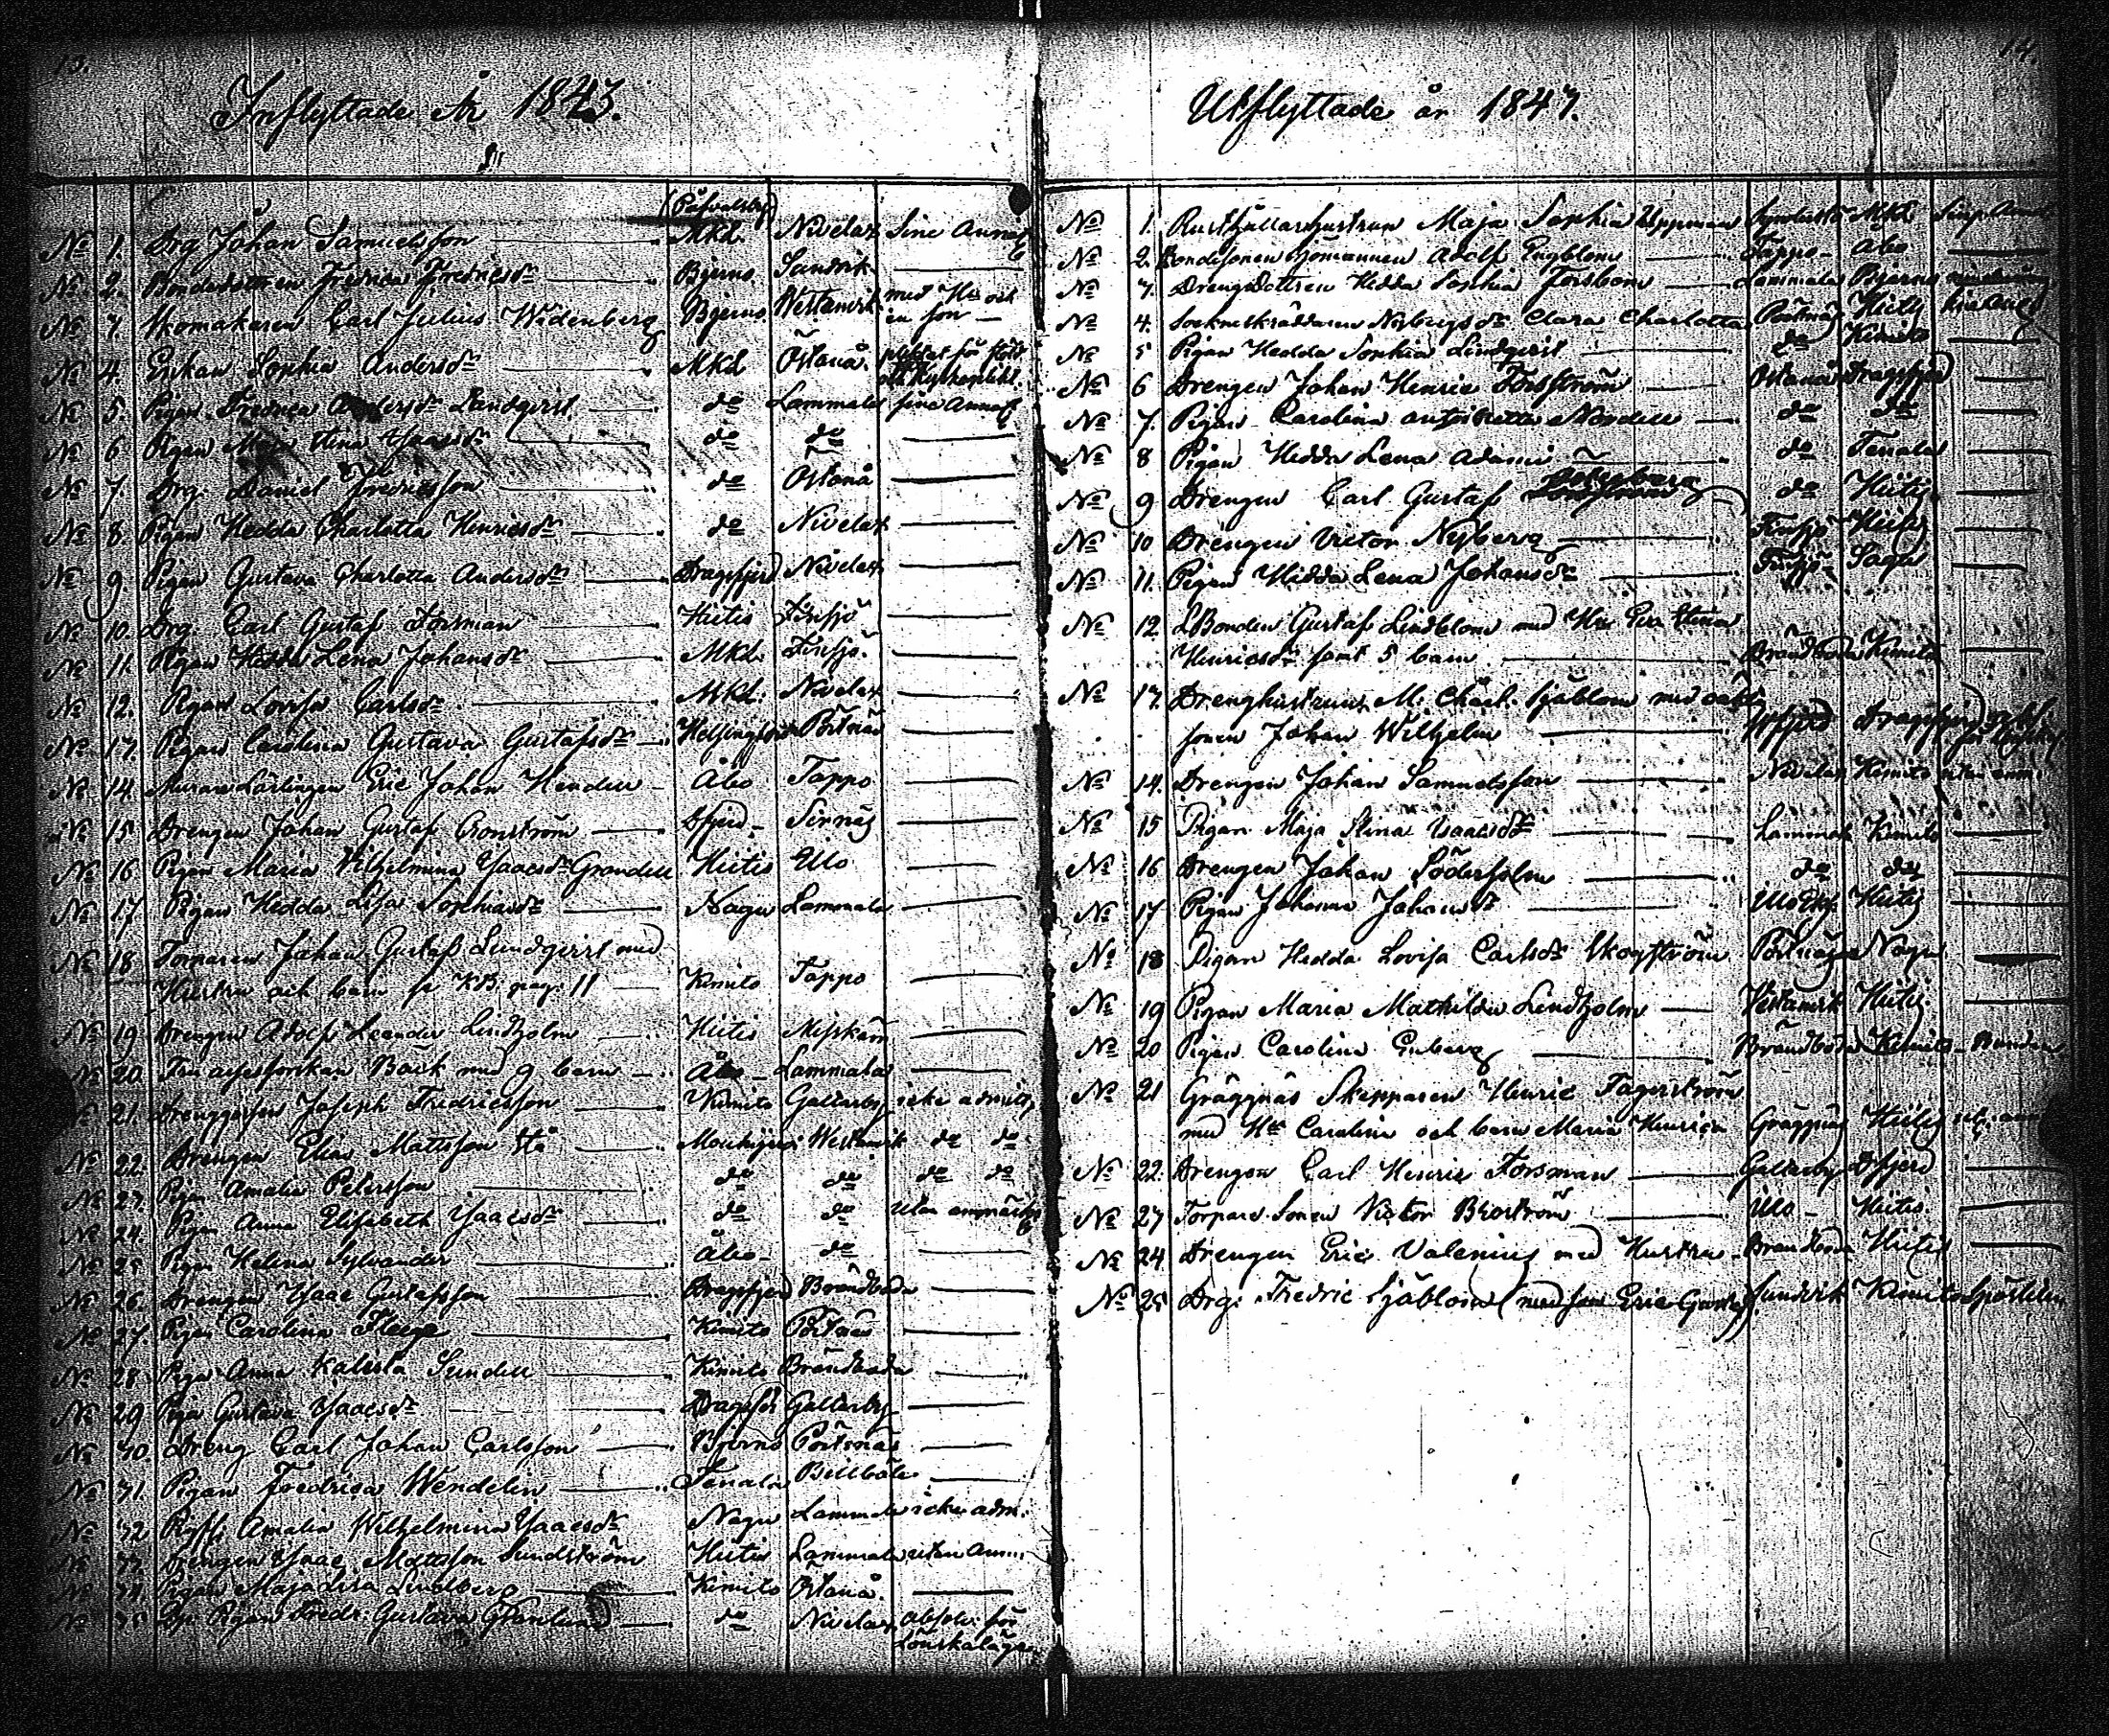 13.
Inflyttade År 1843.
(Påfvalsby)
No 1. Drg Johan Samuelsson Mkd. Nivelax Sine Annot
No 2. Bondedottren Fredrica Fredricsdr Bjerno. Sandvik
No 3. Skomakaren Carl Julius Widenberg Bjerno. Westanvik med Hu och
en son
No 4. Enkan Sophia Andersdr Mkd Östanå. pliktat för stöld
och Kyrkoplikt.
No 5. Pigan Fredrica Andersdr Landqvist do Lammala sine Annot
No 6 Pigan Maja Stina Isaacsdr do do
No 7. Drg. Daniel Fredricsson do Östanå
No 8. Pigan Hedda Charlotta Henricsdr do Nivelax
No 9. Pigan Gustava Charlotta Andersdr Dragsfjerd Nivelax
No 10. Drg. Carl Gustaf Forsman Hitis Finsjö
No 11. Pigan Hedda Lena Johansdr Mkd. Finsjö.
No 12. Pigan Lovisa Carlsdr Mkd. Nivelax
No 13. Pigan Carolina Gustava Gustafsdr Helsingfors Pörtnäs
No 14. Murare Lärlingen Eric Johan Hendell Åbo Tappo
No 15 Drengen Johan Gustaf Cronström Dfjerd Sirnäs
No 16 Pigan Maria Wilhelmina Isaacsdr Grondell Hitis Ulo
No 17 Pigan Hedda Lisa Sophiasdr Nagu Lammala
No 18 Torparen Johan Gustaf Lundqvist med
Hustru och barn se KB. pag. 11 Kimito Tappo
No 19 Drengen Adolf Leander Lindholm Hitis Misskär
No 20. Fru Bäck med 9 barn Åbo Lammala
No 21. Drenggossen Joseph Fredricsson Kimito Galtarby icke admitt.
No 22. Drengen Elias Mattsson Stå Westanvik do do
No 23. Pigan Amalia Petersson do do do do
No 24. Pigan Anna Elisabeth Isaacsdr do do utan anmärkn
No 25 Pigan Helena Sylvander Åbo do
No 26. Drengen Isaac Gustafsson Dragsfjerd Brändboda
No 27. Pigan Carolina Fleege Kimito Pörtnäs
No 28 Pigan Anna Kajsa Sundell Kimito Brändboda
No 29 Piga Gustava Isaacsdr Dragsfj Galtarby
No 30. Dreng Carl Johan Carlsson Bjerno Pörtnäs
No 31. Pigan Fredrica Wendelin Tenala Billböle
No 32 Amalia Wilhelmina Isaacsdr Nagu Lammala icke adm.
No 33. Drengen Isaac Mattsson Sundström Hitis Lammala utan Anm.
No 34. Pigan Maja Lisa Lindberg Kimito Östanå.
No 35 Pigan Fredr. Gustava Granlund do Nivelax absolv. för
Lönskaläge
14.
Utflyttade år 1843.
No 1. Rusthållarhustrun Maja Sophia Uppman Mkd Sine Annot
No 2. Bondesonen Sjömannen Adolf Engblom Tappo Åbo
No 3. Drengdottren Hedda Sophia Forsbom Lammala Bjerno
No 4. Sockneskräddaren Nybergs dr Clara Charlotta Pörtnäs Hitis
No 5 Pigan Hedda Sophia Lindqvist do Kimito
No 6 Drengen Johan Henric Forsström Östanå Dragsfjerd
No 7. Pigan Carolina Antoinetta Nordell do do
No 8 Pigan Hedda Lena Adami do Tenala
No 9 Drengen Carl Gustaf Söderberg do Hitis
No 10 Drengen Victor Nyberg Finsjö Hitis
No 11. Pigan Hedda Lena Johansdr Finsjö Sagu
No 12 LBonden Gustaf Lindblom med Hu Eva Stina
Henricsdr samt 5 barn Brändboda Kimito
No 13. Drenghustrun M. Charl. Sjöblom med oäkta
sonen Johan Wilhelm Dragsfjerd
No 14. Drengen Johan Samuelsson Nivelax Kimito utan anm.
No 15 Pigan Maja Stina Isaacsdr Lammala Kimito
No 16 Drengen Johan Söderholm do do
No 17 Pigan Johanna Johansdr Hitis
No 18 Pigan Hedda Lovisa Carlsdr Skogström Pörtnäs Nagu
No 19 Pigan Maria Mathilda Lindholm Vestanvik Hitis
No 20 Pigan Carolina Enberg Brändboda Kimito
No 21 Gräggnäs Skepparen Henric Fagerström
med Hu Carolina och barn Maria Henrica Gräggnäs Hitis
No 22. Drengen Carl Henric Forsman Galtarby Dfjerd
No 23 Torpare Sonen Victor Broström Ulo Hitis
No 24 Drengen Eric Valenius med Hustru Brändboda Hitis
No 25 Drg. Fredric Sjöblom (med son Eric Gustaf) Sundvik Kimito